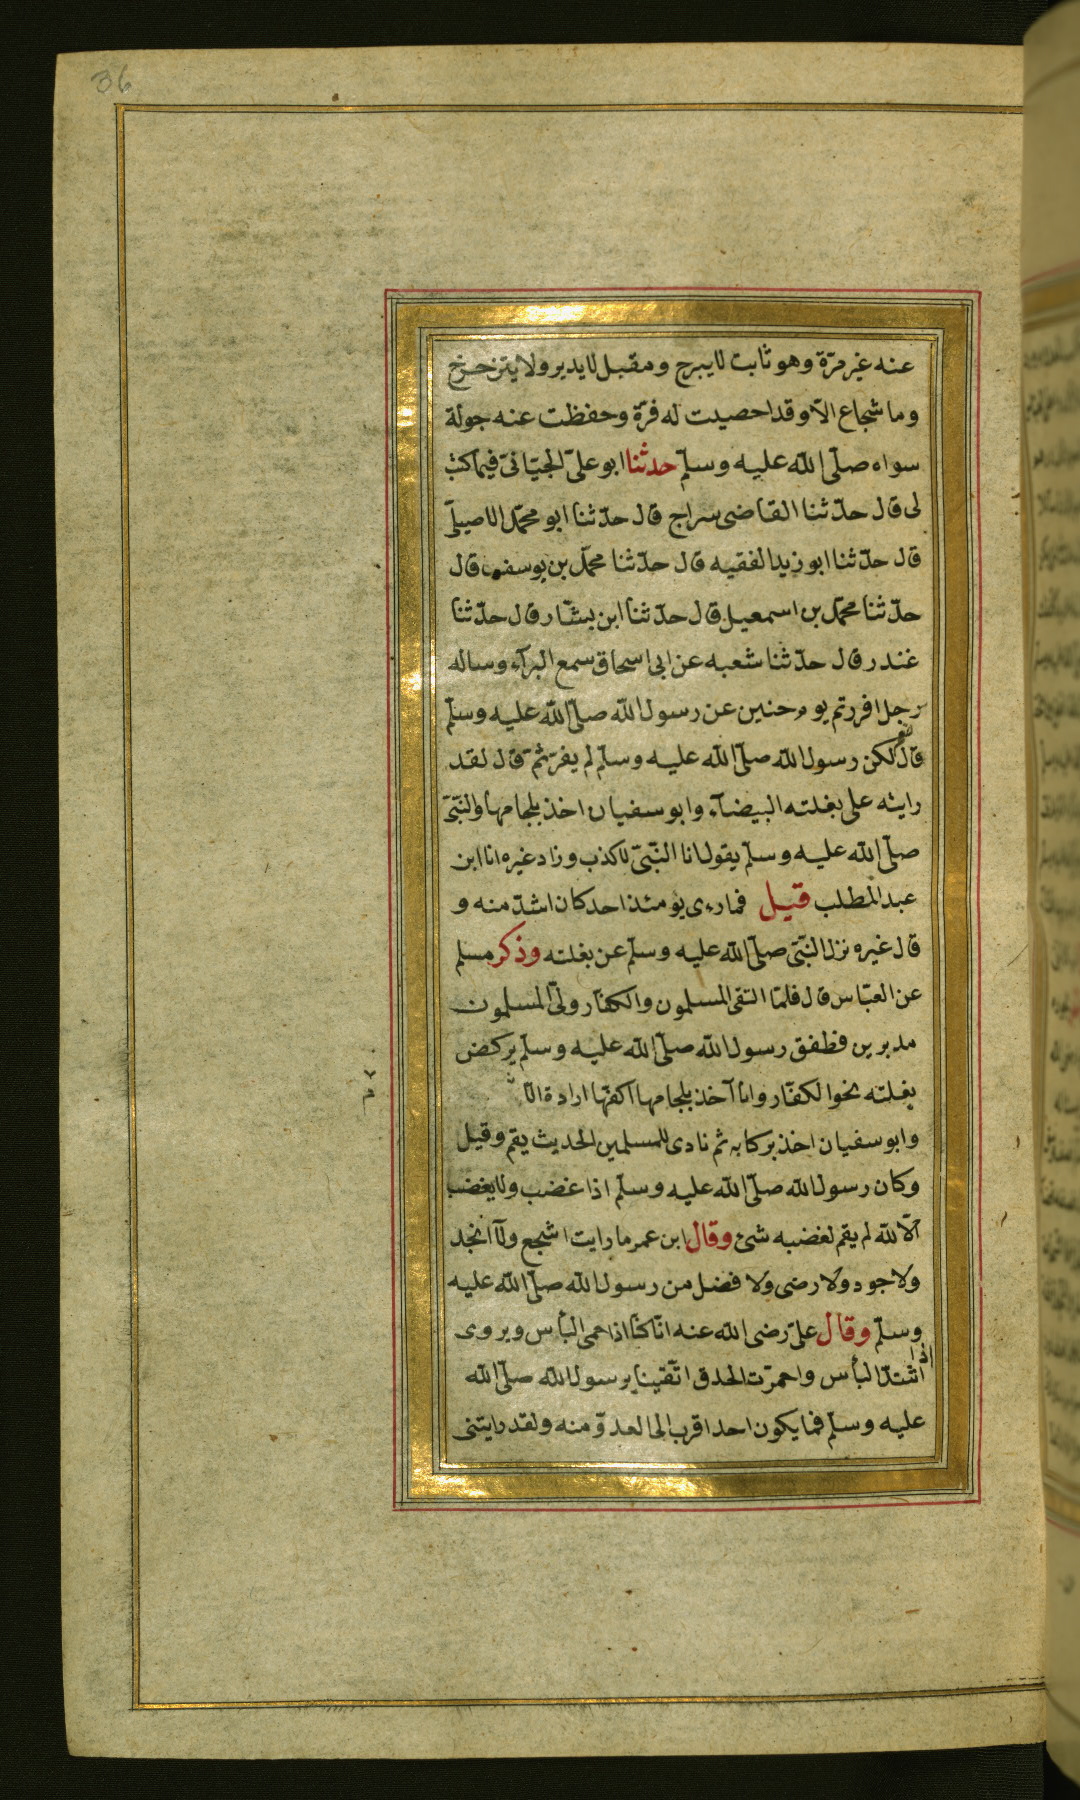 36
عنه غير مرّة وهو ثابت لا يبرح ومقبل لا يدبر ولا يتزحزح
وما شجاع الّا وقد احصيت له فرّة وحفظت عنه جولة
سواه صلّى الله عليه وسلّم حدثنا ابو علىّ الجيّانىّ فيما كتب
لى قال حدّثنا القاضى سراج قال حدّثنا ابو محمّد الاصيلىّ
قال حدّثنا ابو زيد الفقيه قال حدّثنا محمّد بن يوسف قال
حدّثنا محمّد بن اسمعيل قال حدّثنا ابن بشّار قال حدّثنا
غندر قال حدّثنا شعبه عن ابى اسحاق سمع البرآء وساله
رجل افررتم يوم حنين عن رسول الله صلّى الله عليه وسلّم
قال لكن رسول الله صلّى الله عليه وسلّم لم يفرّ ثمّ قال لقد
رايته على بغلته البيضآء وابو سفيان اخذ بلجامها والنّبىّ
صلّى الله عليه وسلّم يقول انا النّبىّ لا كذب وزاد غيره انا ابن
عبد المطلب قيل فما رءى يومئذ احد كان اشدّ منه و
قال غيره نزل النّبىّ صلّى الله عليه وسلّم عن بغلته وذكر مسلم
عن العبّاس قال فلمّا التقى المسلمون والكفّار ولّى المسلمون
مدبرين فطفق رسول الله صلّى الله عليه وسلّم يركض
بغلته نحو الكفّار وانا آخذ بلجامها اكفّها ارادة الّا
وابو سفيان اخذ بركابه ثم نادى للمسلمين الحديث يقم وقيل
وكان رسول الله صلّى الله عليه وسلّم اذا غضب ولا يغضب
الّا لله لم يقم لغضبه شئ وقال ابن عمر ما رايت اشجع ولا انجد
ولا جود ولا رضى ولا فضل من رسول الله صلّى الله عليه
وسلّم وقال علىّ رضى الله عنه انّا كنّا اذا حمى البأس ويروى
اذا اشتدّ البأس واحمرّت الحدق اتّقينا برسول الله صلّى الله
عليه وسلّم فما يكون احد اقرب الى العدوّ منه ولقد رايتنى